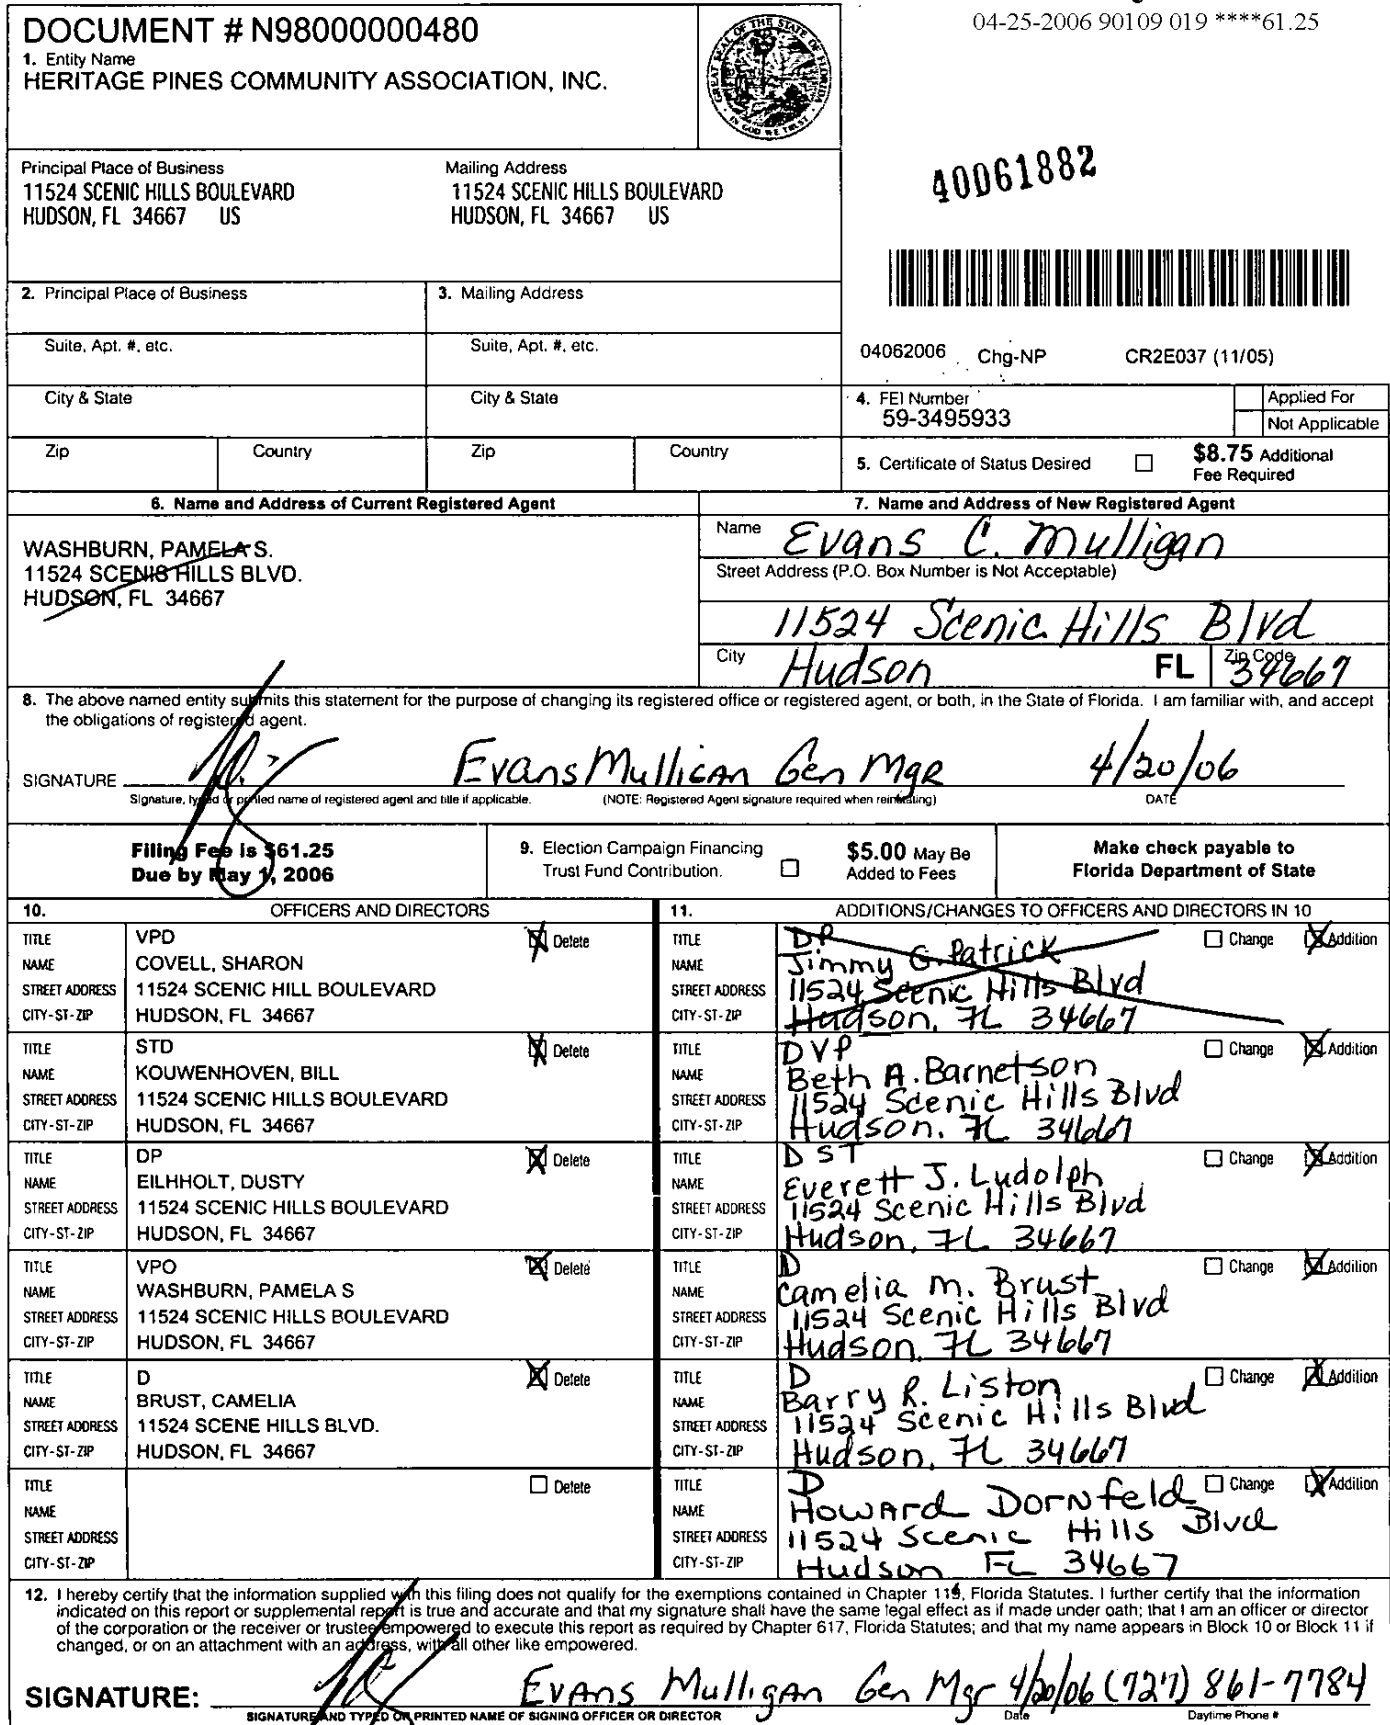 DOCUMENT # N98000000480
04-25-2006 90109 019 ****61.25
1. Entity Name
HERITAGE PINES COMMUNITY ASSOCIATION, INC.
GREAT SEAL OF THE STATE OF FLORIDA
IN GOD WE TRUST
40061882
Principal Place of Business
11524 SCENIC HILLS BOULEVARD
HUDSON, FL 34667 US
Mailing Address
11524 SCENIC HILLS BOULEVARD
HUDSON, FL 34667 US
2. Principal Place of Business
3. Mailing Address
Suite, Apt. #, etc.
Suite, Apt. #, etc.
04062006 Chg-NP CR2E037 (11/05)
City & State
City & State
4. FEI Number
59-3495933
Applied For
Not Applicable
Zip
Country
Zip
Country
5. Certificate of Status Desired
$8.75 Additional
Fee Required
6. Name and Address of Current Registered Agent
7. Name and Address of New Registered Agent
WASHBURN, PAMELA S.
11524 SCENIS HILLS BLVD.
HUDSON, FL 34667
Name Evans C. Mulligan
Street Address (P.O. Box Number is Not Acceptable)
11524 Scenic Hills Blvd
City Hudson FL Zip Code 34667
8. The above named entity submits this statement for the purpose of changing its registered office or registered agent, or both, in the State of Florida. I am familiar with, and accept
the obligations of registered agent.
SIGNATURE Evans Mulligan Gen Mgr 4/20/06
Signature, typed or printed name of registered agent and title if applicable. (NOTE: Registered Agent signature required when reinstating) DATE
Filing Fee is $61.25
Due by May 1, 2006
9. Election Campaign Financing
Trust Fund Contribution.
$5.00 May Be
Added to Fees
Make check payable to
Florida Department of State
10. OFFICERS AND DIRECTORS
11. ADDITIONS/CHANGES TO OFFICERS AND DIRECTORS IN 10
TITLE VPD Delete
NAME COVELL, SHARON
STREET ADDRESS 11524 SCENIC HILL BOULEVARD
CITY-ST-ZIP HUDSON, FL 34667
TITLE DP Change Addition
NAME Jimmy G. Patrick
STREET ADDRESS 11524 Scenic Hills Blvd
CITY-ST-ZIP Hudson, FL 34667
TITLE STD Delete
NAME KOUWENHOVEN, BILL
STREET ADDRESS 11524 SCENIC HILLS BOULEVARD
CITY-ST-ZIP HUDSON, FL 34667
TITLE DVP Change Addition
NAME Beth A. Barnetson
STREET ADDRESS 11524 Scenic Hills Blvd
CITY-ST-ZIP Hudson, FL 34667
TITLE DP Delete
NAME EILHHOLT, DUSTY
STREET ADDRESS 11524 SCENIC HILLS BOULEVARD
CITY-ST-ZIP HUDSON, FL 34667
TITLE DST Change Addition
NAME Everett J. Ludolph
STREET ADDRESS 11524 Scenic Hills Blvd
CITY-ST-ZIP Hudson, FL 34667
TITLE VPO Delete
NAME WASHBURN, PAMELA S
STREET ADDRESS 11524 SCENIC HILLS BOULEVARD
CITY-ST-ZIP HUDSON, FL 34667
TITLE D Change Addition
NAME Camelia M. Brust
STREET ADDRESS 11524 Scenic Hills Blvd
CITY-ST-ZIP Hudson, FL 34667
TITLE D Delete
NAME BRUST, CAMELIA
STREET ADDRESS 11524 SCENE HILLS BLVD.
CITY-ST-ZIP HUDSON, FL 34667
TITLE D Change Addition
NAME Barry R. Liston
STREET ADDRESS 11524 Scenic Hills Blvd
CITY-ST-ZIP Hudson, FL 34667
TITLE Delete
NAME
STREET ADDRESS
CITY-ST-ZIP
TITLE D Change Addition
NAME Howard Dornfeld
STREET ADDRESS 11524 Scenic Hills Blvd
CITY-ST-ZIP Hudson FL 34667
12. I hereby certify that the information supplied with this filing does not qualify for the exemptions contained in Chapter 119, Florida Statutes. I further certify that the information
indicated on this report or supplemental report is true and accurate and that my signature shall have the same legal effect as if made under oath; that I am an officer or director
of the corporation or the receiver or trustee empowered to execute this report as required by Chapter 617, Florida Statutes; and that my name appears in Block 10 or Block 11 if
changed, or on an attachment with an address, with all other like empowered.
SIGNATURE: Evans Mulligan Gen Mgr 4/20/06 (727) 861-7784
SIGNATURE AND TYPED OR PRINTED NAME OF SIGNING OFFICER OR DIRECTOR Date Daytime Phone #